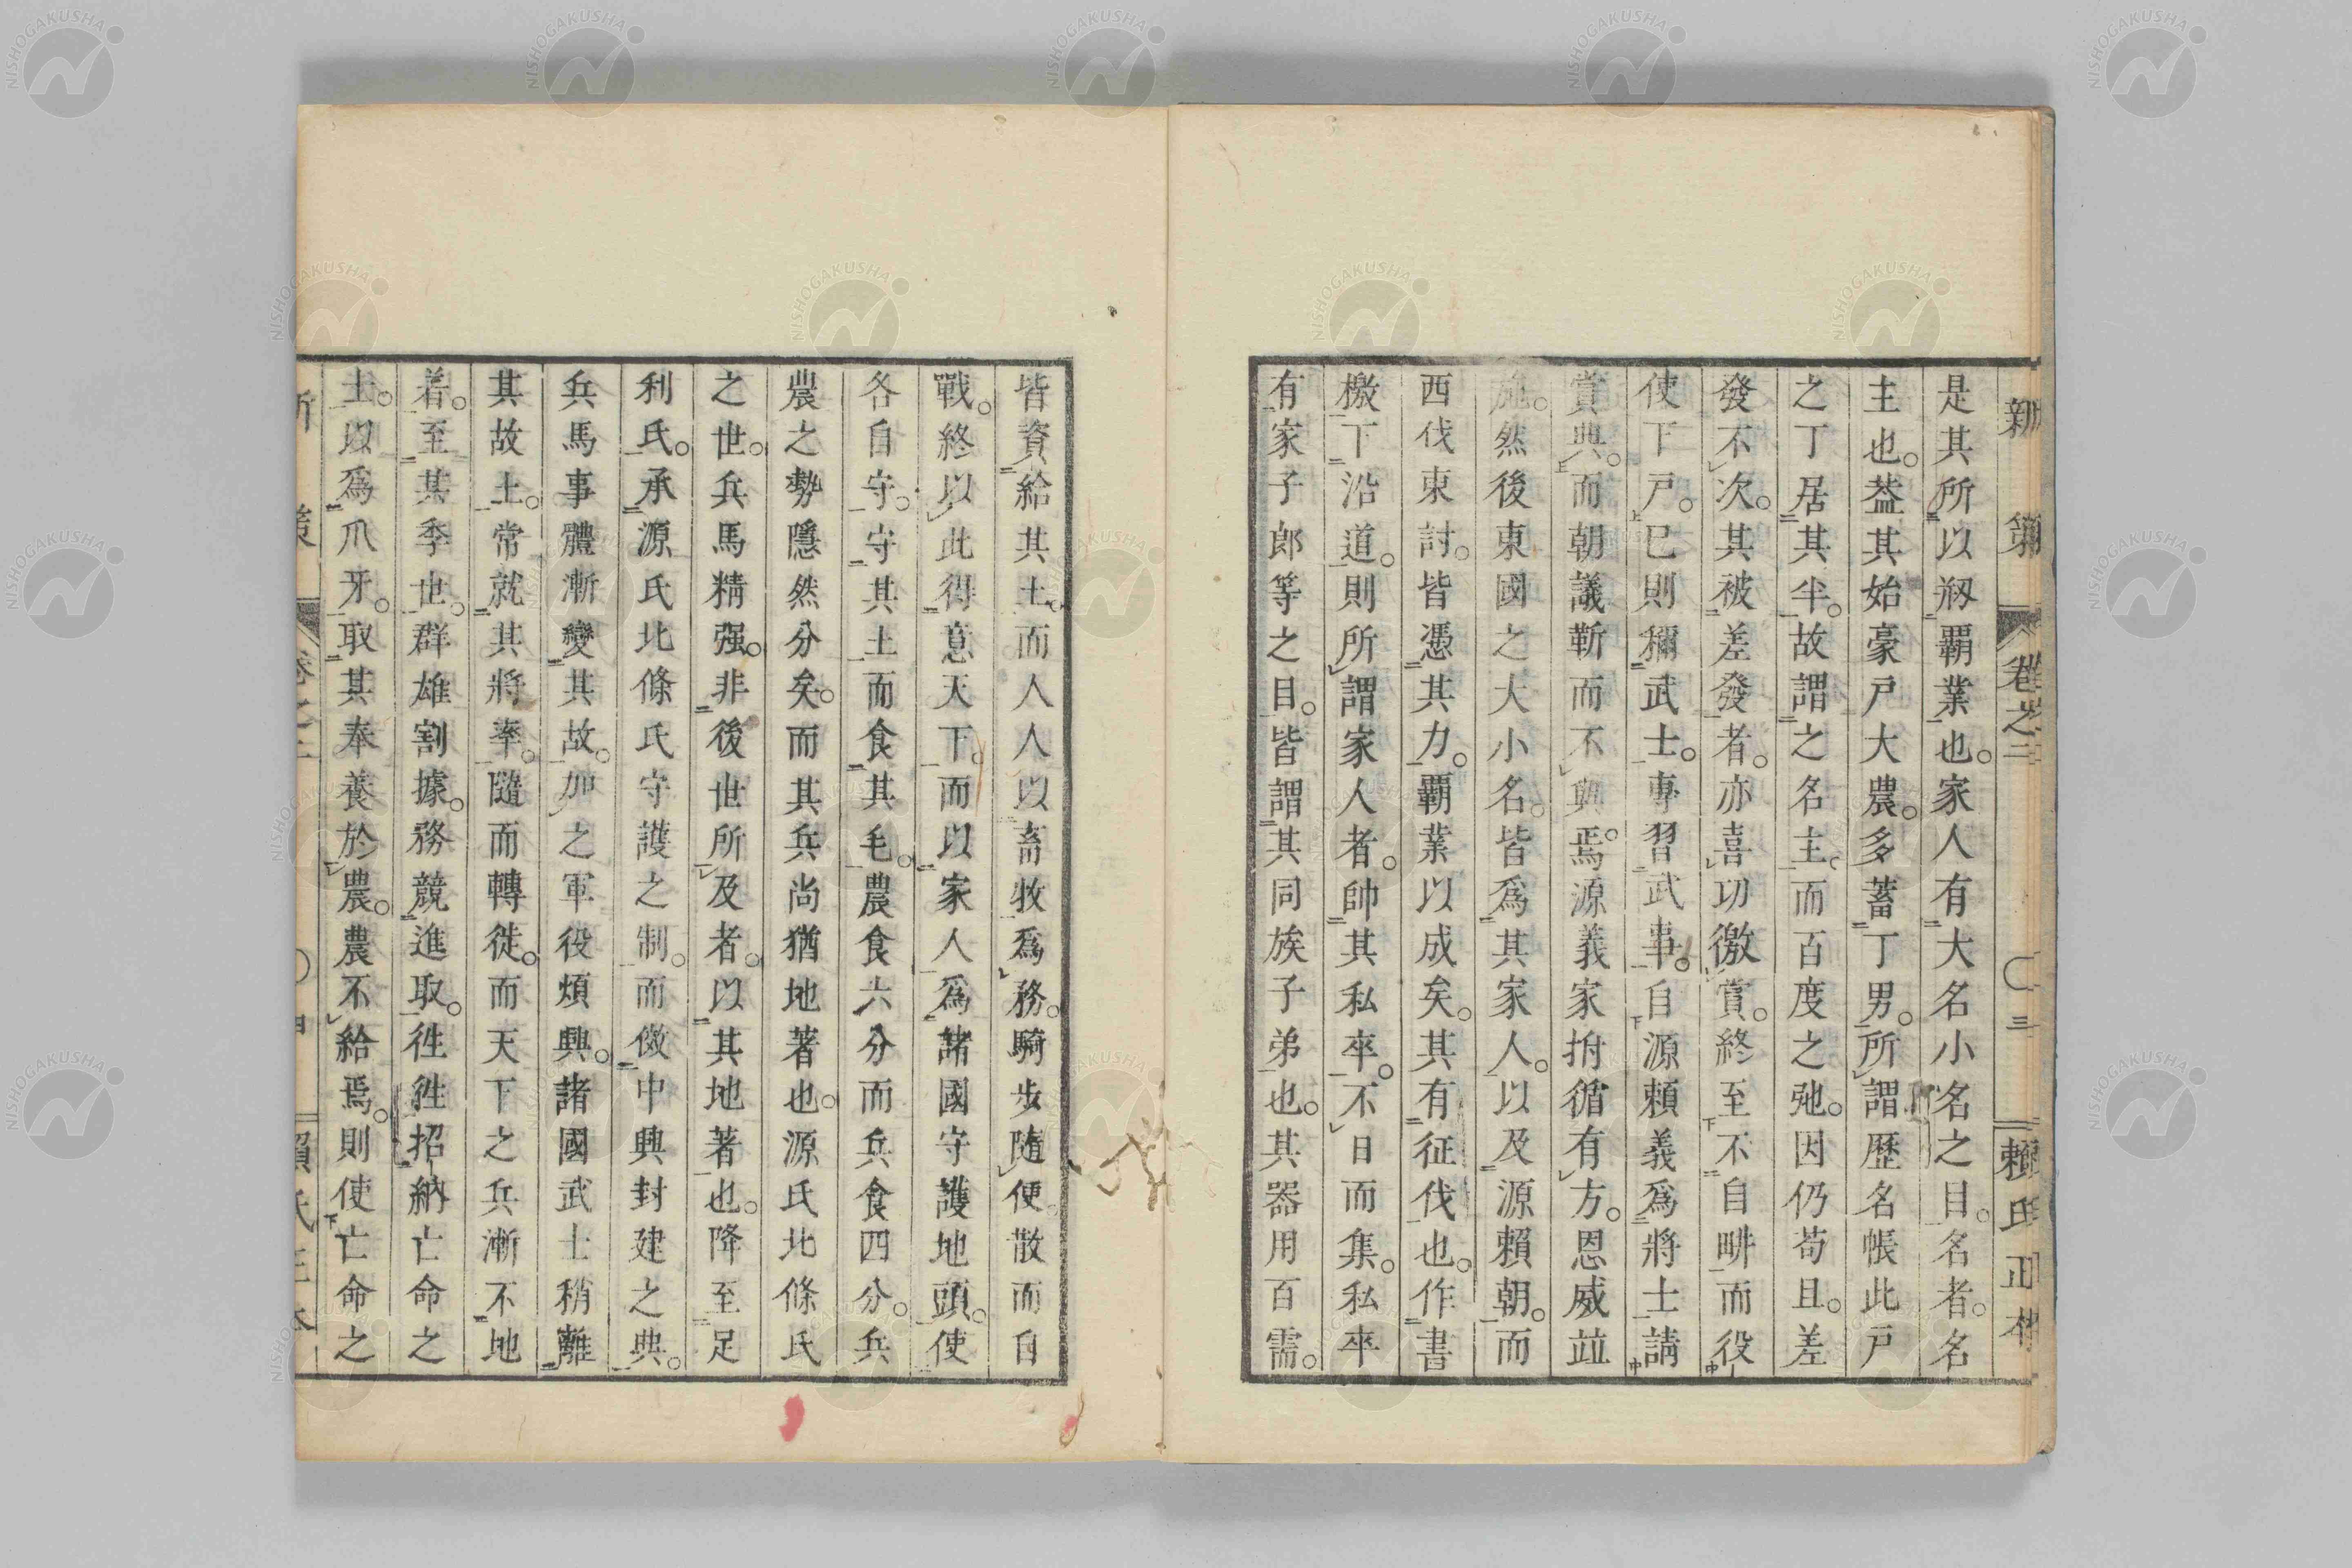 新策 卷之二 〇三 賴氏正本
是其所以刱覇業也。家人有大名小名之目。名者。名
主也。葢其始豪戸大農。多蓄丁男。所謂歴名帳此戸
之丁居其半。故謂之名主。而百度之弛。因仍苟且。差
發不次。其被差發者。亦喜功徼賞。終至不自畊而役
使下戸。已則稱武士。專習武事。自源賴義爲將士請
賞典。而朝議靳而不與焉。源義家拊循有方。恩威竝
施。然後東國之大小名。皆爲其家人。以及源賴朝。而
西伐東討。皆憑其力。覇業以成矣。其有征伐也。作書
檄下沿道。則所謂家人者。帥其私卒。不日而集。私卒
有家子郎等之目。皆謂其同族子弟也。其器用百需。
皆資給其土。而人人以畜牧爲務。騎步隨便。散而自
戰。終以此得意天下。而以家人爲諸國守護地頭。使
各自守。守其土而食其毛。農食六分而兵食四分。兵
農之勢隱然分矣。而其兵尚猶地著也。源氏北條氏
之世。兵馬精强。非後世所及者。以其地著也。降至足
利氏。承源氏北條氏守護之制。而倣中興封建之典。
兵馬事體漸變其故。加之軍役煩興。諸國武士稍離
其故土。常就其將率。隨而轉徙。而天下之兵漸不地
着。至某季世。群雄割據。務競進取。徃徃招納亡命之
士。以爲爪牙。取其奉養於農。農不給焉。則使亡命之